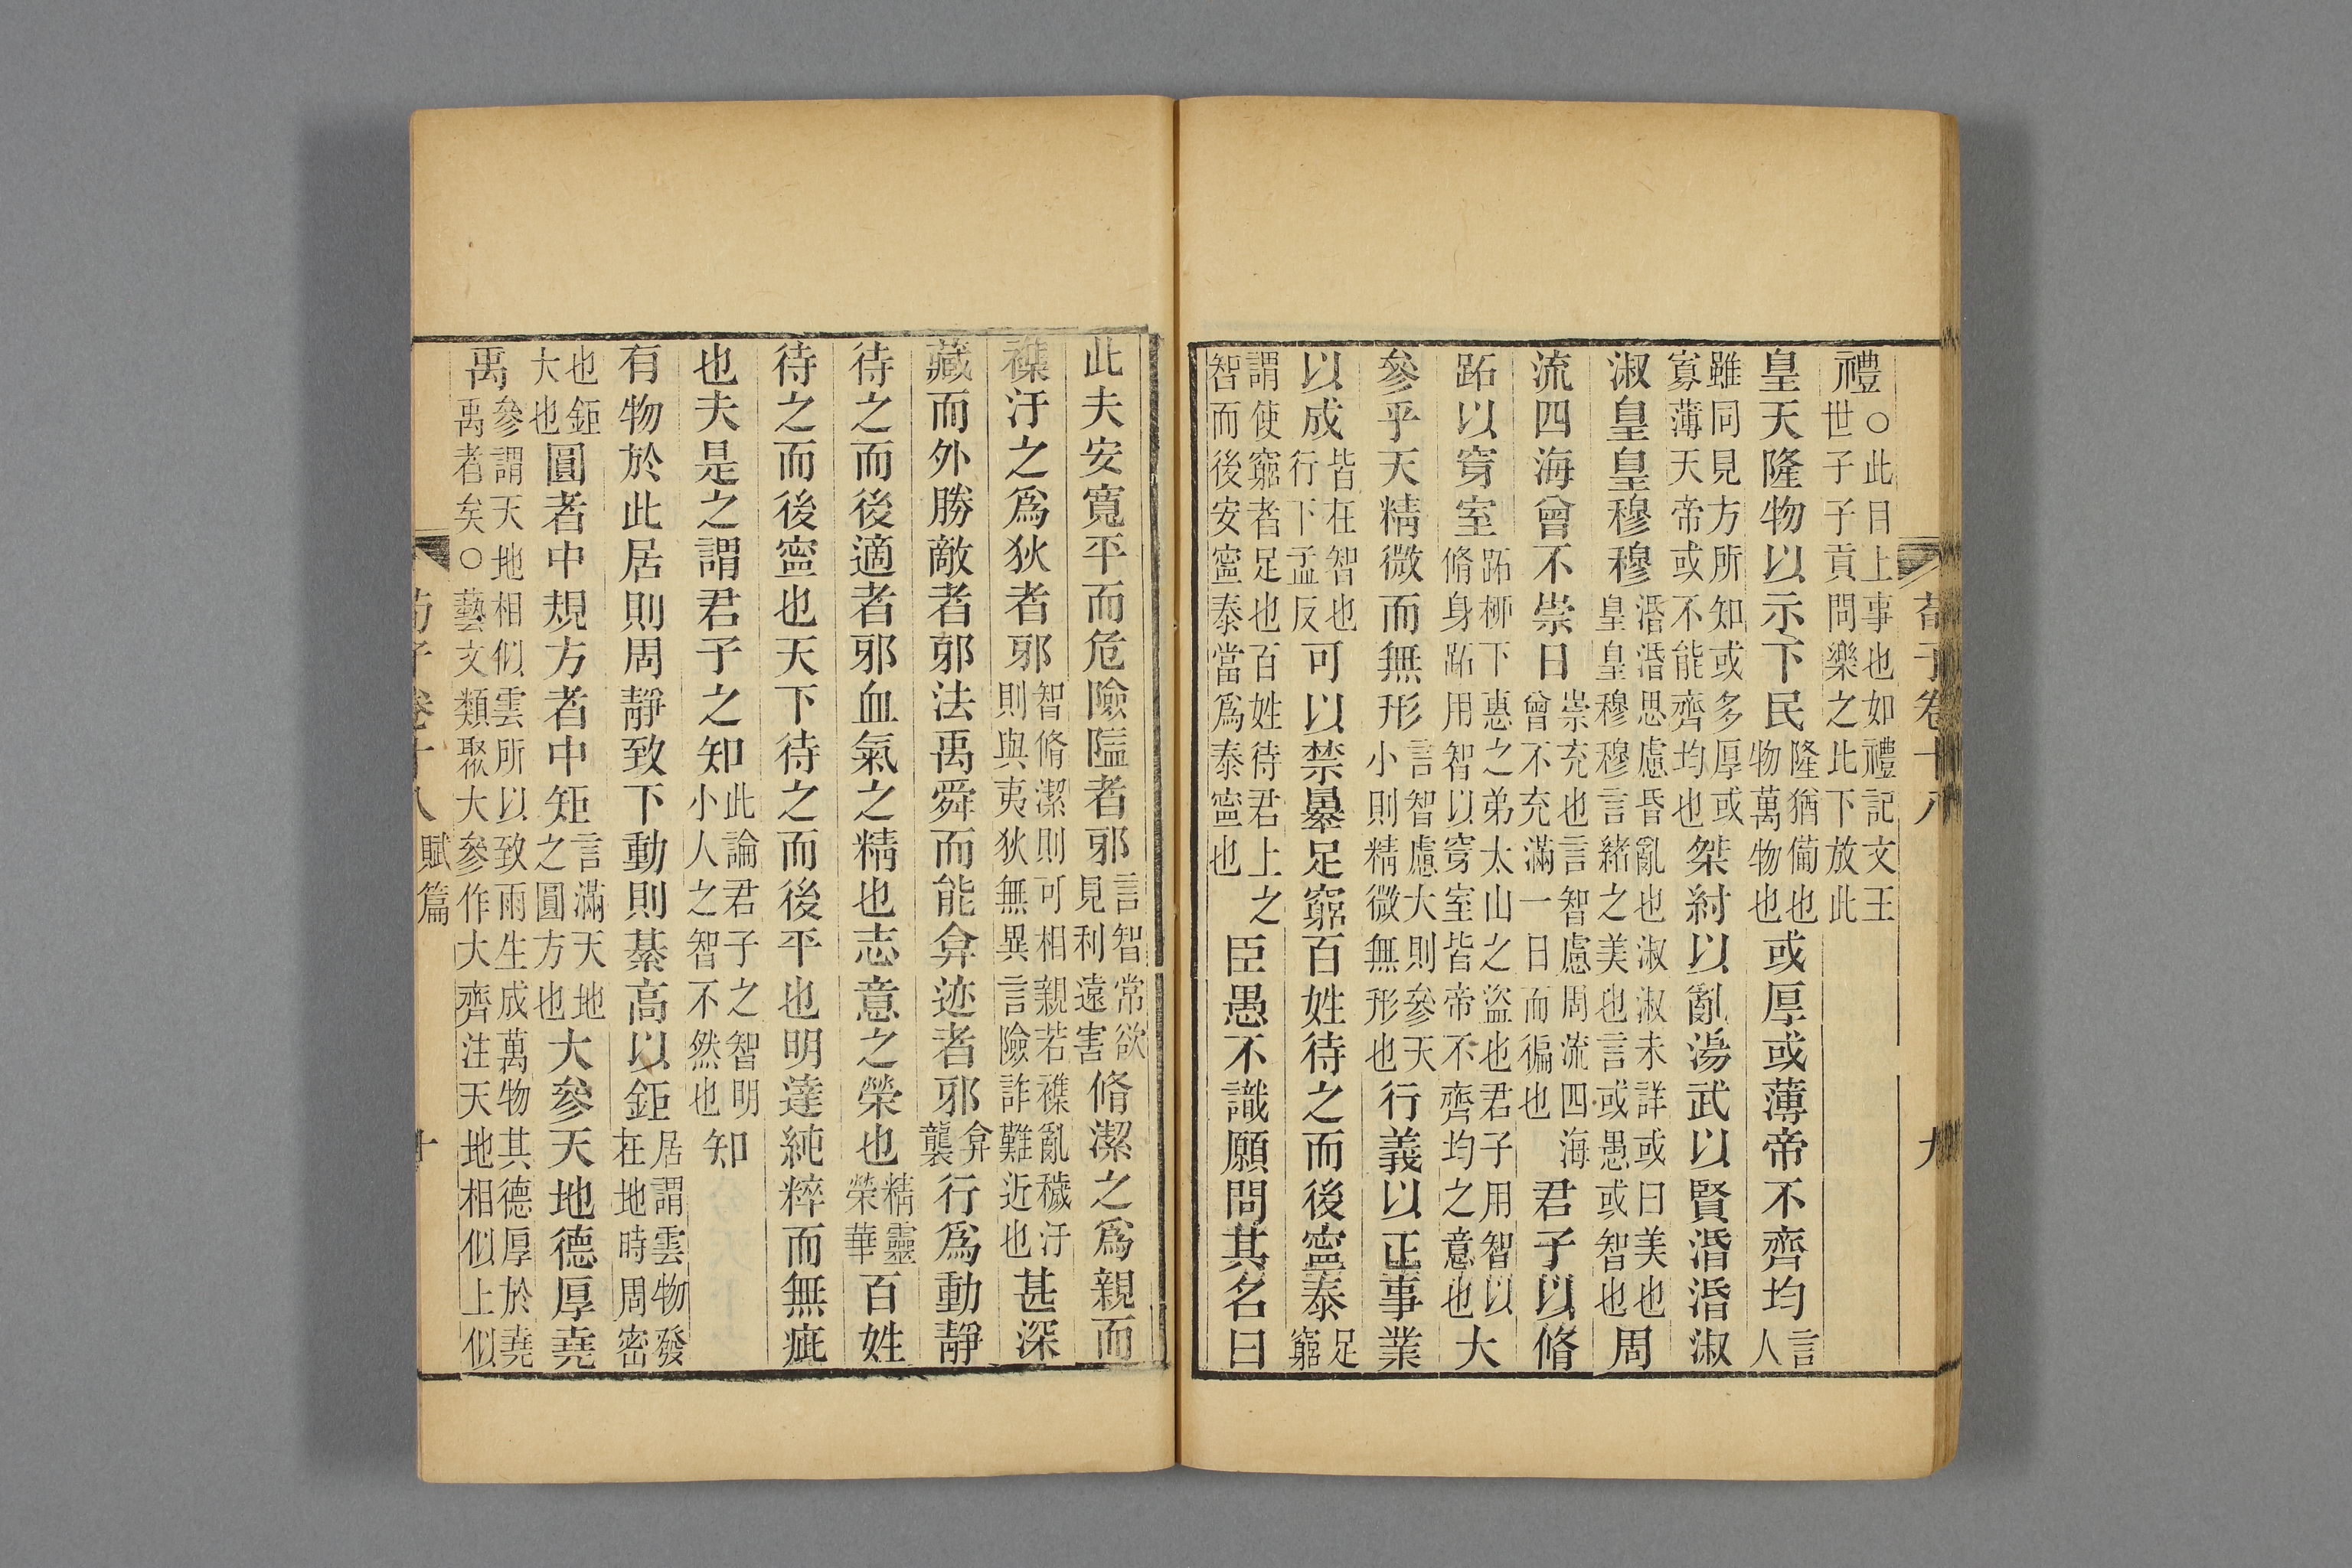 荀子卷十八 九
禮○此目上事也如禮記文王世子子貢問樂之此下放此
皇天隆物以示下民隆猶備也物萬物也或厚或薄帝不齊均言人
雖同見方所知或多厚或寡薄天帝或不能齊均也桀紂以亂湯武以賢涽涽淑
淑皇皇穆穆涽涽思慮昏亂也淑淑未詳或曰美也皇皇穆穆言緒之美也言或愚或智也周
流四海曾不崇日崇充也言智慮周流四海曾不充滿一日而徧也君子以脩
跖以穿室跖柳下惠之弟太山之盜也君子用智以脩身跖用智以穿室皆帝不齊均之意也大
參乎天精微而無形言智慮大則參天小則精微無形也行義以正事業
以成皆在智也行下孟反可以禁暴足窮百姓待之而後寧泰足窮
謂使窮者足也百姓待君上之智而後安寧泰當爲泰寧也臣愚不識願問其名曰
此夫安寬平而危險隘者邪言智常欲見利遠害脩潔之爲親而
襍汙之爲狄者邪智脩潔則可相親若襍亂穢汙則與夷狄無異言險詐難近也甚深
藏而外勝敵者邪法禹舜而能弇迹者邪弇襲行爲動靜
待之而後適者邪血氣之精也志意之榮也精靈榮華百姓
待之而後寧也天下待之而後平也明達純粹而無疵
也夫是之謂君子之知此論君子之智明小人之智不然也知
有物於此居則周靜致下動則綦高以鉅居謂雲物發在地時周密
也鉅大也圓者中規方者中矩言滿天地之圓方也大參天地德厚堯
禹參謂天地相似雲所以致雨生成萬物其德厚於堯禹者矣○藝文類聚大參作大齊注天地相似上似
荀子卷十八 賦篇 十